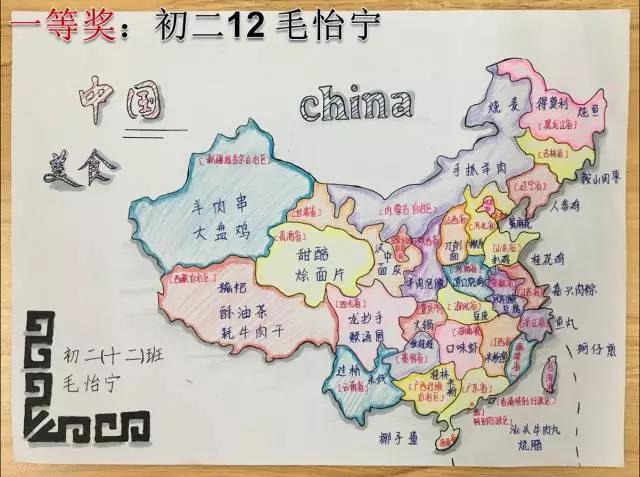 一等奖：初二12 毛怡宁
中国
china
美食
烧麦
得莫利
炖鱼
[黑龙江省]
[吉林省]
手抓羊肉
[辽宁省]
鞍山闷枣
人参鸡
[新疆维吾尔自治区]
羊肉串
大盘鸡
[甘肃省]
[内蒙古自治区]
[青海省]
甜醅
烩面片
汉中
面皮
[山西省]
刀削
面
[河北省]
[山东省]
扒鸡
桂花鸡
[西藏自治区]
糌粑
酥油茶
牦牛肉干
羊肉泡馍
[河南省]
道口烧鸡
[安徽省]
豆腐
嘉兴肉粽
[四川省]
龙抄手
赖汤圆
[重庆市]
火锅
[湖北省]
豆皮
[浙江省]
鱼丸
[湖南省]
口味虾
[江西省]
[福建省]
蚵仔煎
[台湾省]
[贵州省]
过桥
米线
[云南省]
桂林
米粉
[广西壮族
自治区]
[广东省]
[香港特别行政区]
特别行政区]
汕头牛肉丸
烧腊
椰子蛋
[海南省]
初二(十二)班
毛怡宁